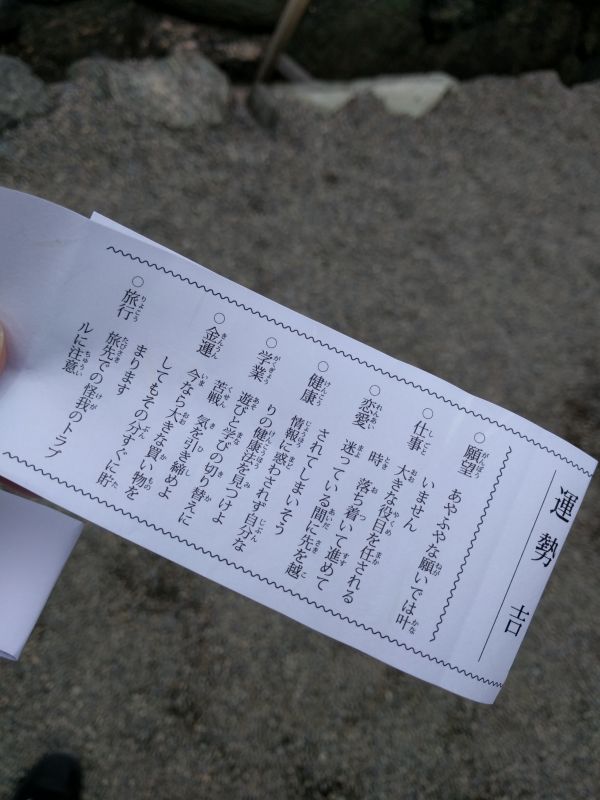 運勢 吉
○願望 あやふやな願いでは叶
いません
○仕事 大きな役目を任される
時 落ち着いて進めて
○恋愛 迷っている間に先を越
されてしまいそう
○健康 情報に惑わされず自分な
りの健康法を見つけよ
○学業 遊びと学びの切り替えに
苦戦 気を引き締めよ
○金運 今なら大きな買い物を
してもその分すぐに貯
まります
○旅行 旅先での怪我のトラブ
ルに注意